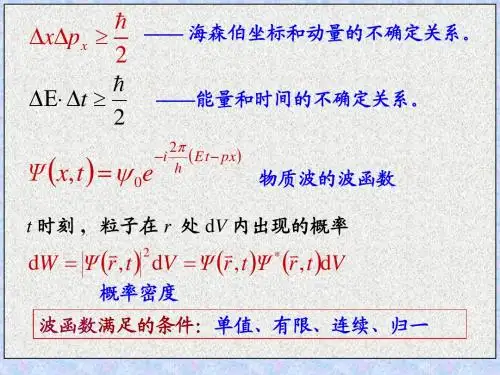 ΔxΔpₓ ≥ ℏ/2 —— 海森伯坐标和动量的不确定关系。
ΔE· Δt ≥ ℏ/2 ——能量和时间的不确定关系。
Ψ(x,t) = ψ₀e^{-i(2π/h)(Et-px)} 物质波的波函数
t 时刻，粒子在 r 处 dV 内出现的概率
dW = |Ψ(r⃗,t)|² dV = Ψ(r⃗,t)Ψ*(r⃗,t)dV
概率密度
波函数满足的条件：单值、有限、连续、归一